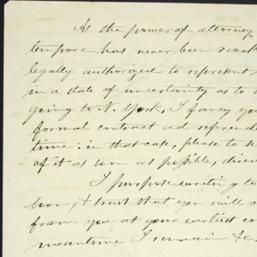 As the power of attorney
tempore has never been reach
legally authorized to represent
in a state of uncertainty as to
going to N. York, I fancy you
formal contract ad referendu
time: in that case, please to
of it as soon as possible, direc
I purpose writing to
soon, & trust that you will
from you at your earliest co
meantime I remain &c.